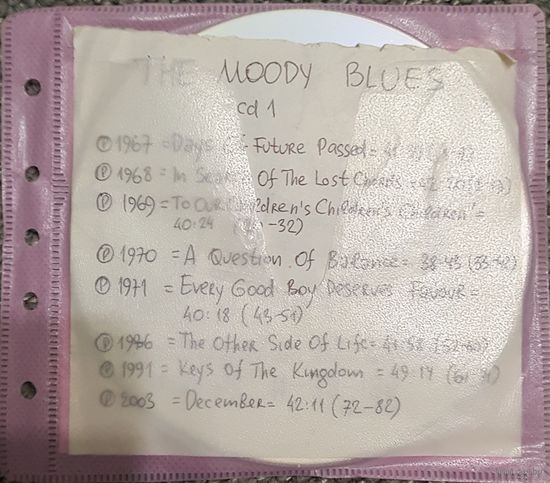 THE MOODY BLUES
cd 1
Ⓟ 1967 = Days Of Future Passed =
Ⓟ 1968 = In Of The Lost Chords =
Ⓟ 1969 = To Our Children's Children's Children =
40:24 -32)
Ⓟ 1970 = A Question Of Balance = 38:43 (33-42)
Ⓟ 1971 = Every Good Boy Deserves Favour =
40:18 (43-51)
Ⓟ 1986 = The Other Side Of Life = 41:58 (52-60)
Ⓟ 1991 = Keys Of The Kingdom = 49:14
Ⓟ 2003 = December = 42:11 (72-82)